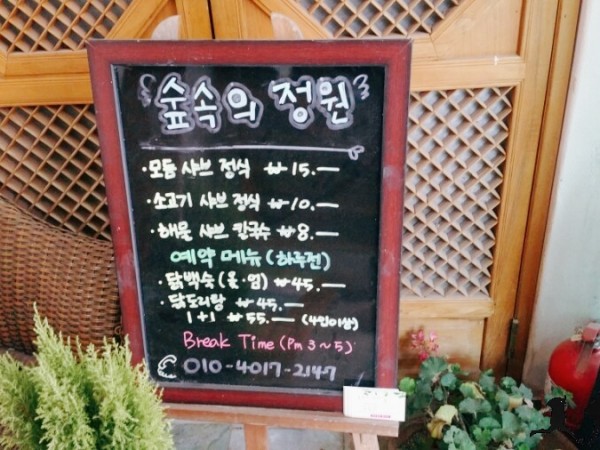 "숲속의 정원"
· 모듬 샤브 정식 ₩15.—
· 소고기 샤브 정식 ₩10.—
· 해물 샤브 칼국수 ₩8.—
예약 메뉴 (하루전)
· 닭백숙 (옻·엄) ₩45.—
· 닭도리탕 ₩45.—
1+1 ₩55.— (4인이상)
Break Time (Pm 3~5)
010-4017-2147